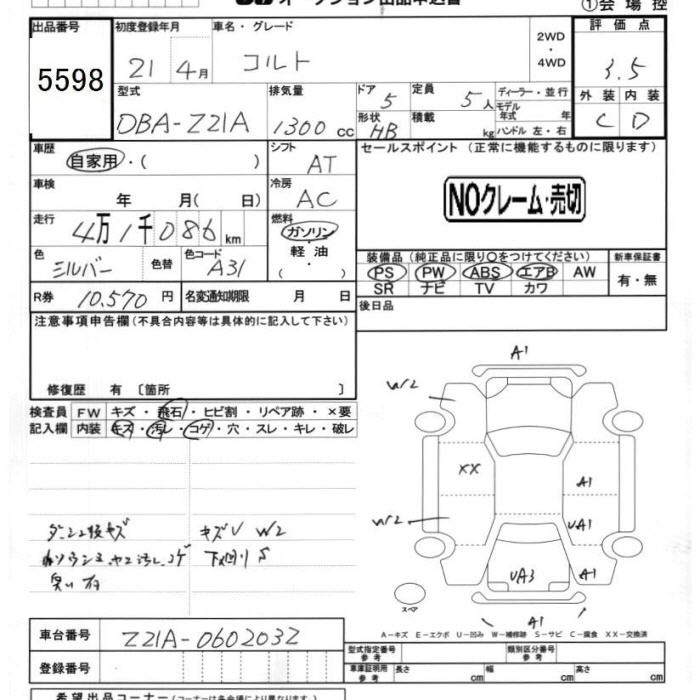 ①会場控
出品番号
5598
初度登録年月
21 4月
車名・グレード
コルト
2WD
・
4WD
評価点
3.5
型式
DBA-Z21A
排気量
1300 cc
ドア 5
形状 HB
定員 5人
積載 kg
ディーラー・並行
モデル年式 年
ハンドル 左・右
外装 内装
C D
車歴
自家用・( )
シフト
AT
セールスポイント (正常に機能するものに限ります)
NOクレーム・売切
車検
年 月( 日)
冷房
AC
走行
4万1千086km
燃料
ガソリン
・
軽油
( )
色
シルバー
色替
色コード
A31
装備品 (純正品に限り○をつけてください)
PS PW ABS エアB AW
SR ナビ TV カワ
新車保証書
有・無
R券 10,570円
名変通知期限 月 日
後日品
注意事項申告欄(不具合内容等は具体的に記入して下さい)
修復歴 有〔箇所 〕
検査員記入欄
FW キズ・飛石・ヒビ割・リペア跡・×要
内装 キズ・汚レ・コゲ・穴・スレ・キレ・破レ
ダッシュ板キズ
キズU W2
下回りS
臭い有
A1
W2
XX
A1
W2
UA1
UA3
A1
A1
スペア
A-キズ E-エクボ U-凹み W-補修跡 S-サビ C-腐食 XX-交換済
車台番号
Z21A-0602032
登録番号
型式指定番号 参考
類別区分番号 参考
車庫証明用 参考
長さ cm
幅 cm
高さ cm
希望出品コーナー(コーナーは各会場により異なります)